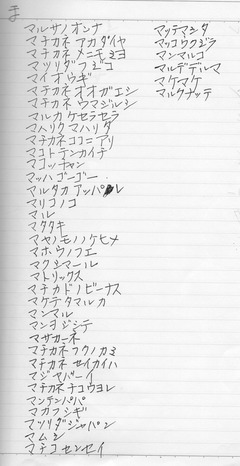 ま
マルサノオンナ
マチカネアカダイヤ
マチカネメニモミヨ
マツリダフミコ
マイオウギ
マチカネオオガエシ
マチカネウマジルシ
マルカケセラセラ
マハリクマハリタ
マチカネココニアリ
マコトテンカイチ
マゴッチャン
マッハゴーゴー
マルタカアッパレ
マリコノコ
マル
マタタキ
マヤノモノノケヒメ
マホウノフエ
マクシマール
マトリックス
マチカドノビーナス
マケテタマルカ
マンマル
マンヲジシテ
マザカーネ
マチカネフクノカミ
マチカネセイカイハ
マジャバーノ
マチカネチコウヨレ
マンテンパパ
マカフシギ
マツリダジャパン
マムシ
マテコセンセイ
マッテマシタ
マッコウクジラ
マンマルゴ
マルデデルマ
マケマケ
マルクナッテ